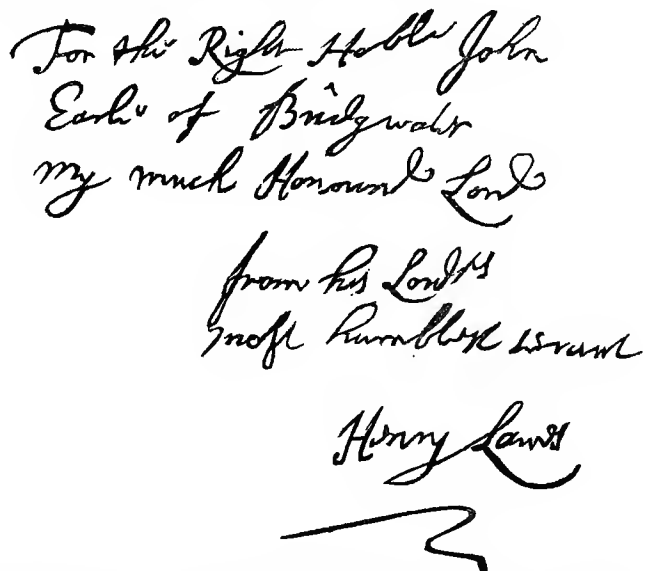 For the Right Hoble John
Earle of Bridgwater
my much Honourd Lord
from his Lordps
most humblest servant
Henry Lawes